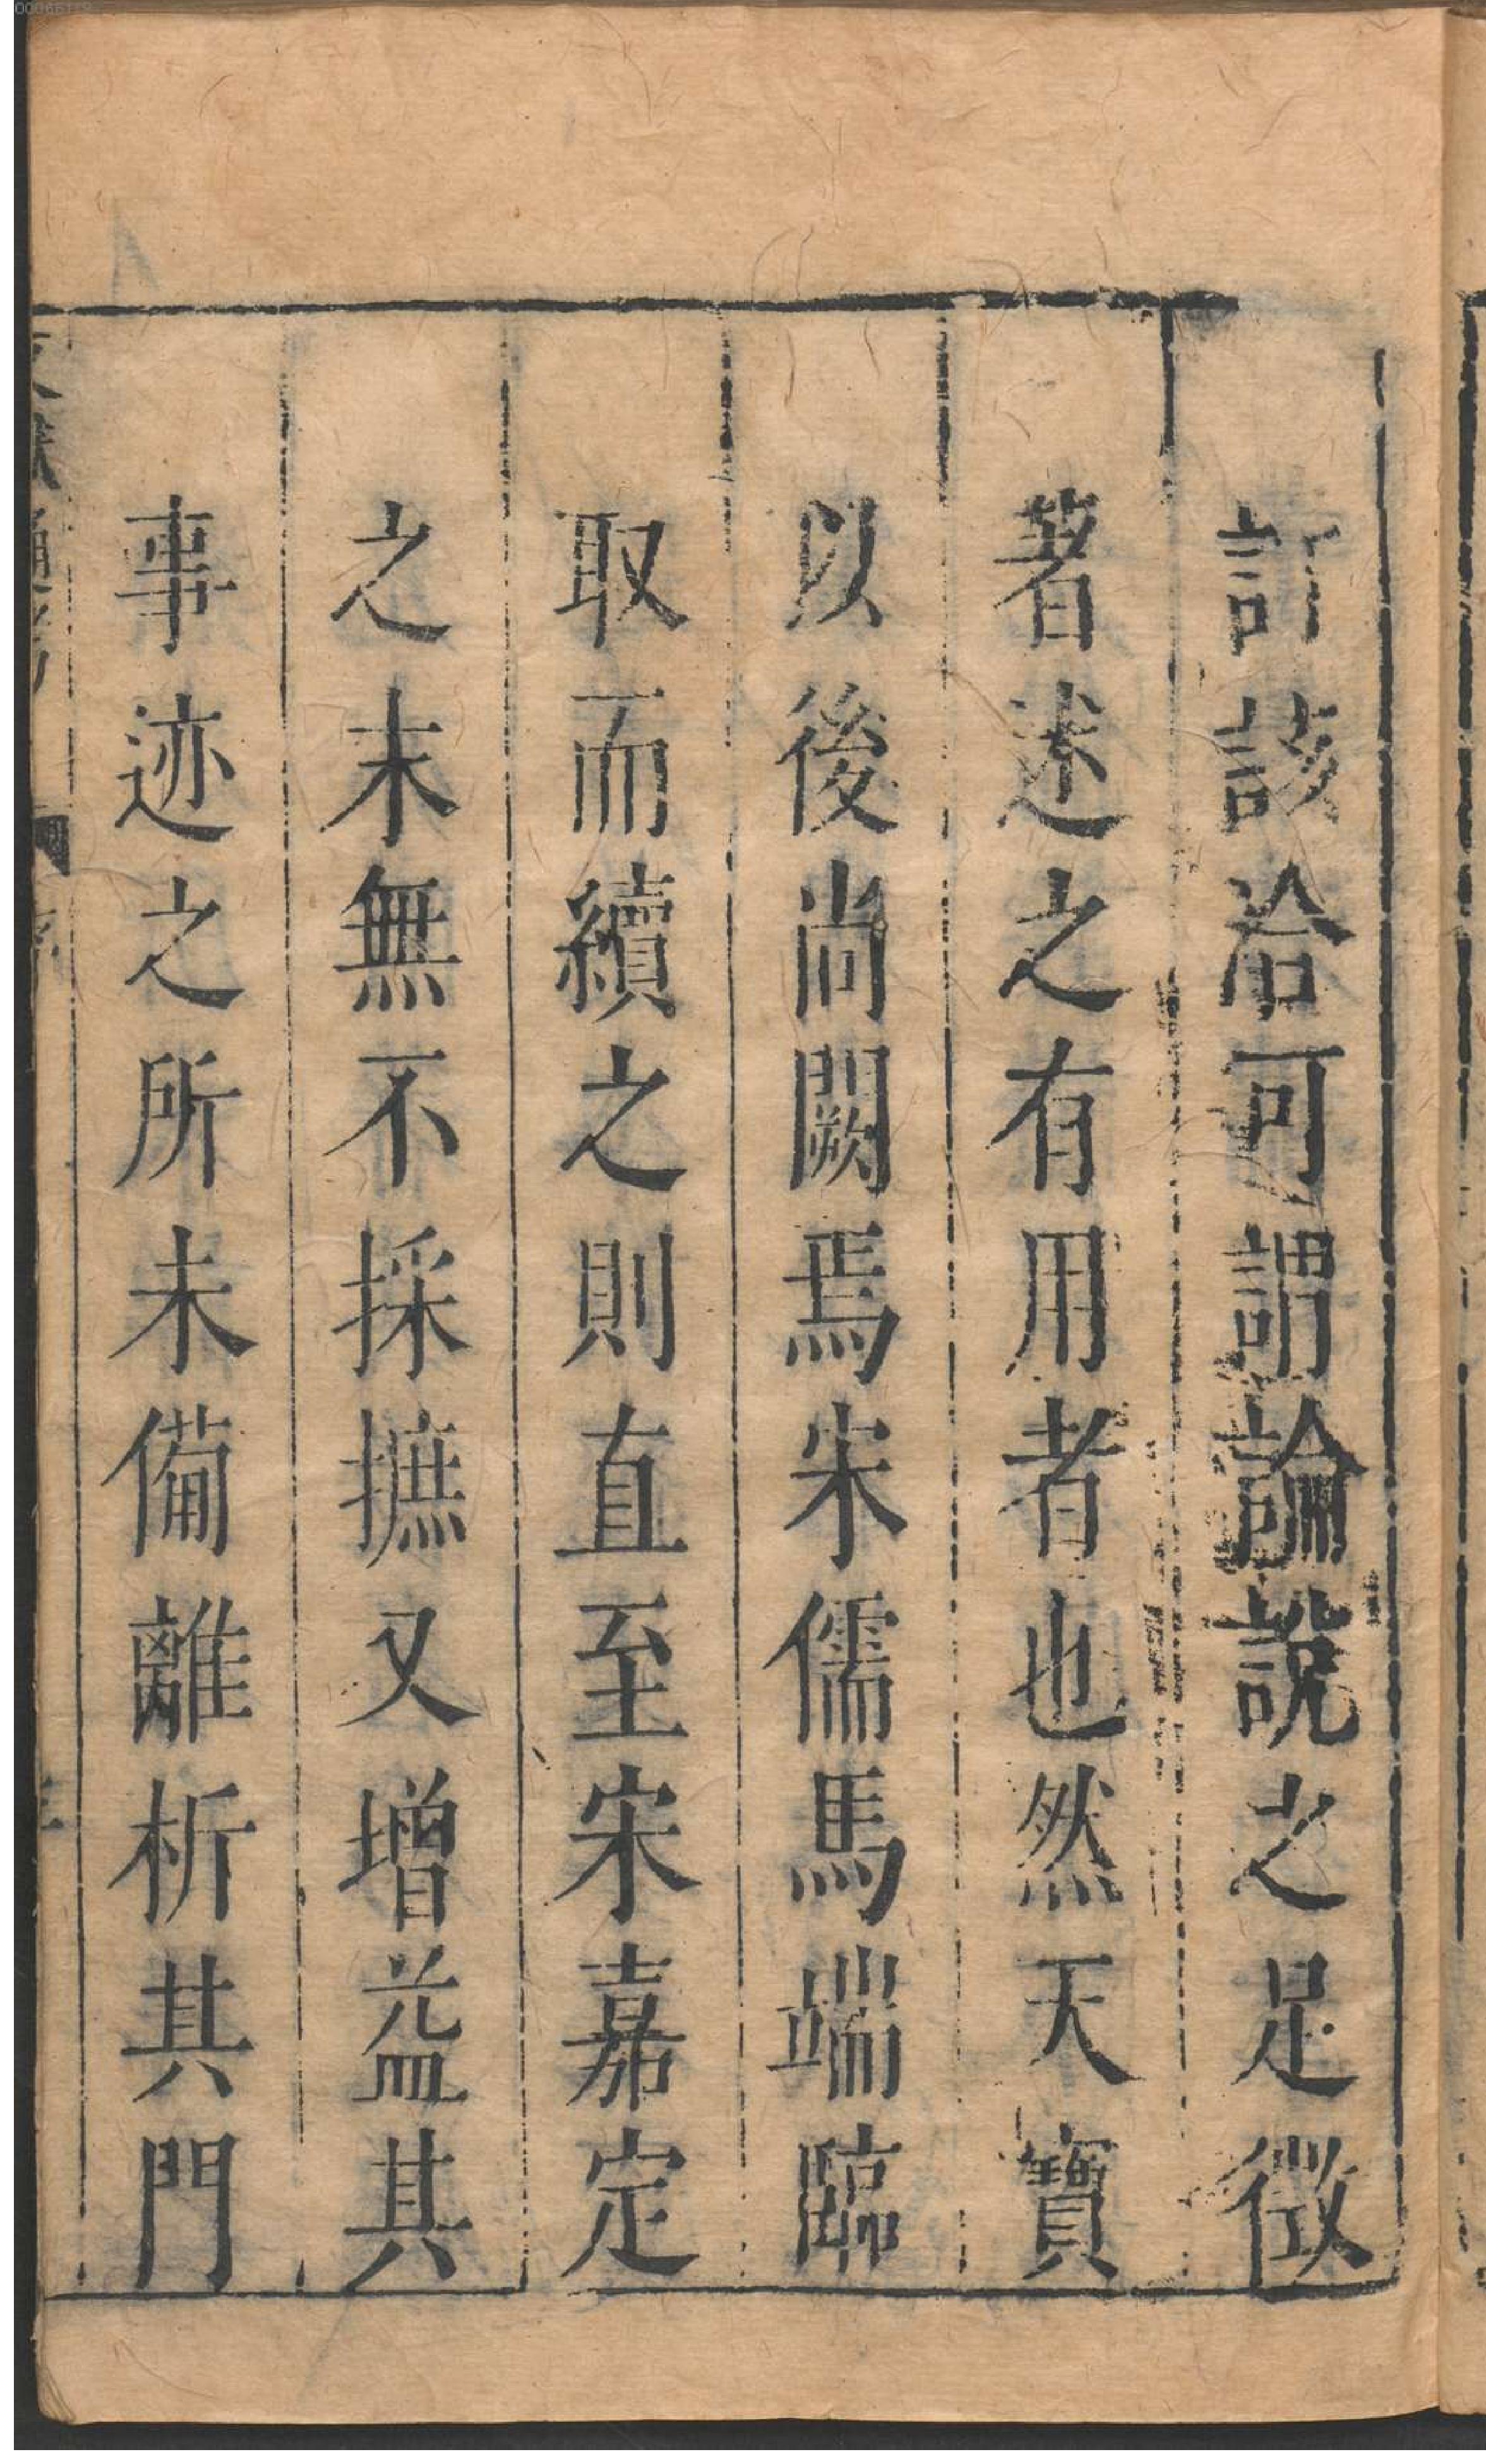 訂該洽可謂論說之足徵
著述之有用者也然天寶
以後尚闕焉宋儒馬端臨
取而續之則直至宋嘉定
之末無不採摭又增益其
事迹之所未備離析其門